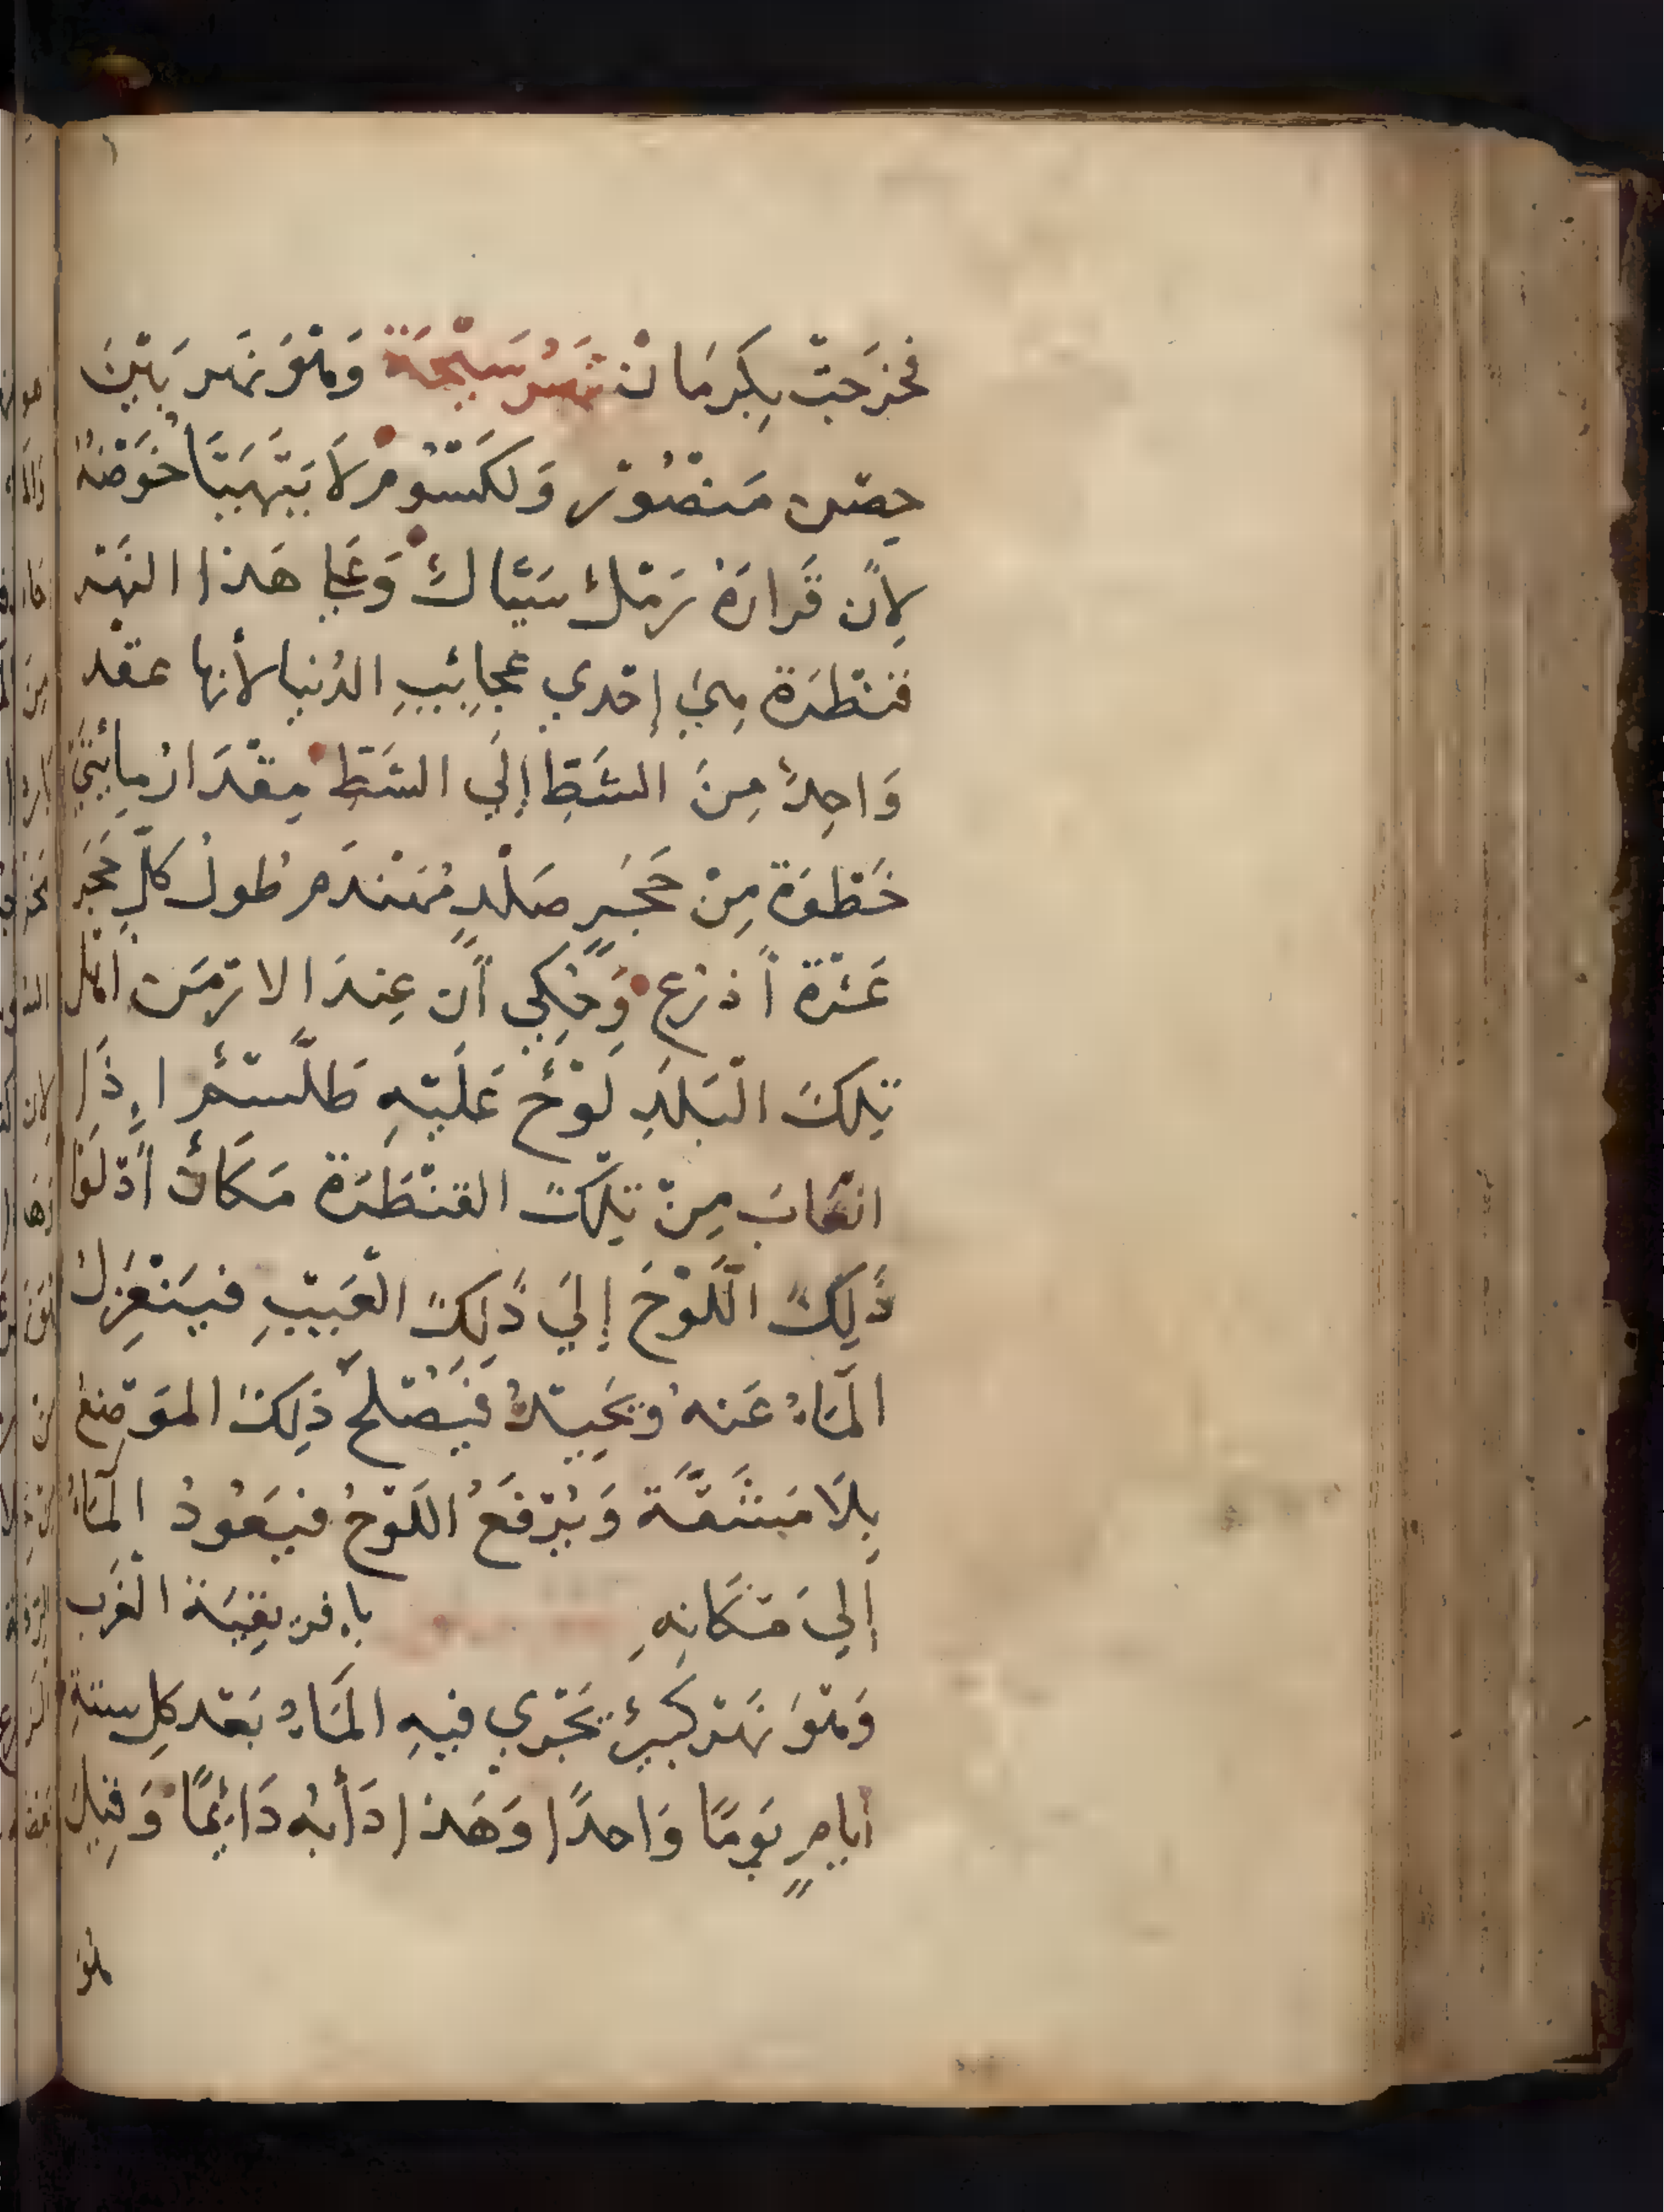 فخرَجَتْ بِكِرمَانْ نَهْرُ سَيْحَة وَهْوَ نَهَر بَيْنَ
حِصْن مَنصُوْر وَلَكَسُوْم لاَ يَتَهَيَّأُ خَوْضَهُ
لِأن قَرارَهُ رَمْلٌ سَيَّالٌ وَعَلَى هَذا النَهْر
قنْطَرَة هِيَ إحْدي عَجايِبِ الدُنيا لأنها عقْد
وَاحِدٌ مِنَ الشَطِ إلَي الشَطِ مِقْدَارُ مِائَتَيْ
خَطْوَة مِنْ حَجَرٍ صَلْدٍ مُهَنْدَم طُولُ كلِّ حَجَر
عَشرَة أذرُعٍ وَحُكِي أن عِندَ الارْمَن أهْل
تِلكَ الْبَلدِ لَوْحٌ عَلَيْهِ طَلَّسْمٌ اِذَا
انعَابَ مِنْ تِلكَ القنْطَرَة مَكَانٌ أدْلَوْا
ذَلِكَ اللَّوْحَ إلَي ذَلِكَ الْعَيْبِ فيَنْعَزِلُ
المَاءُ عَنهُ وَيَحِيْدُ فَيُصْلَحُ ذلِكَ المَوْضِعُ
بِلاَ مَشَقَّة وَيُرْفَعُ اللَوْحُ فيَعُودُ المَاءُ
إلَيَ مَكَانِهِ بِاِفرِيقِيَة الْغَرب
وَهْوَ نَهْر كَبِيرٌ يَجْرِي فيهِ المَاءُ بَعْد كلِ ستةِ
أيامٍ يَومًا وَاحدًا وَهَذا دَأبُه دَائِمًا وَقِيلَ
هُوَ